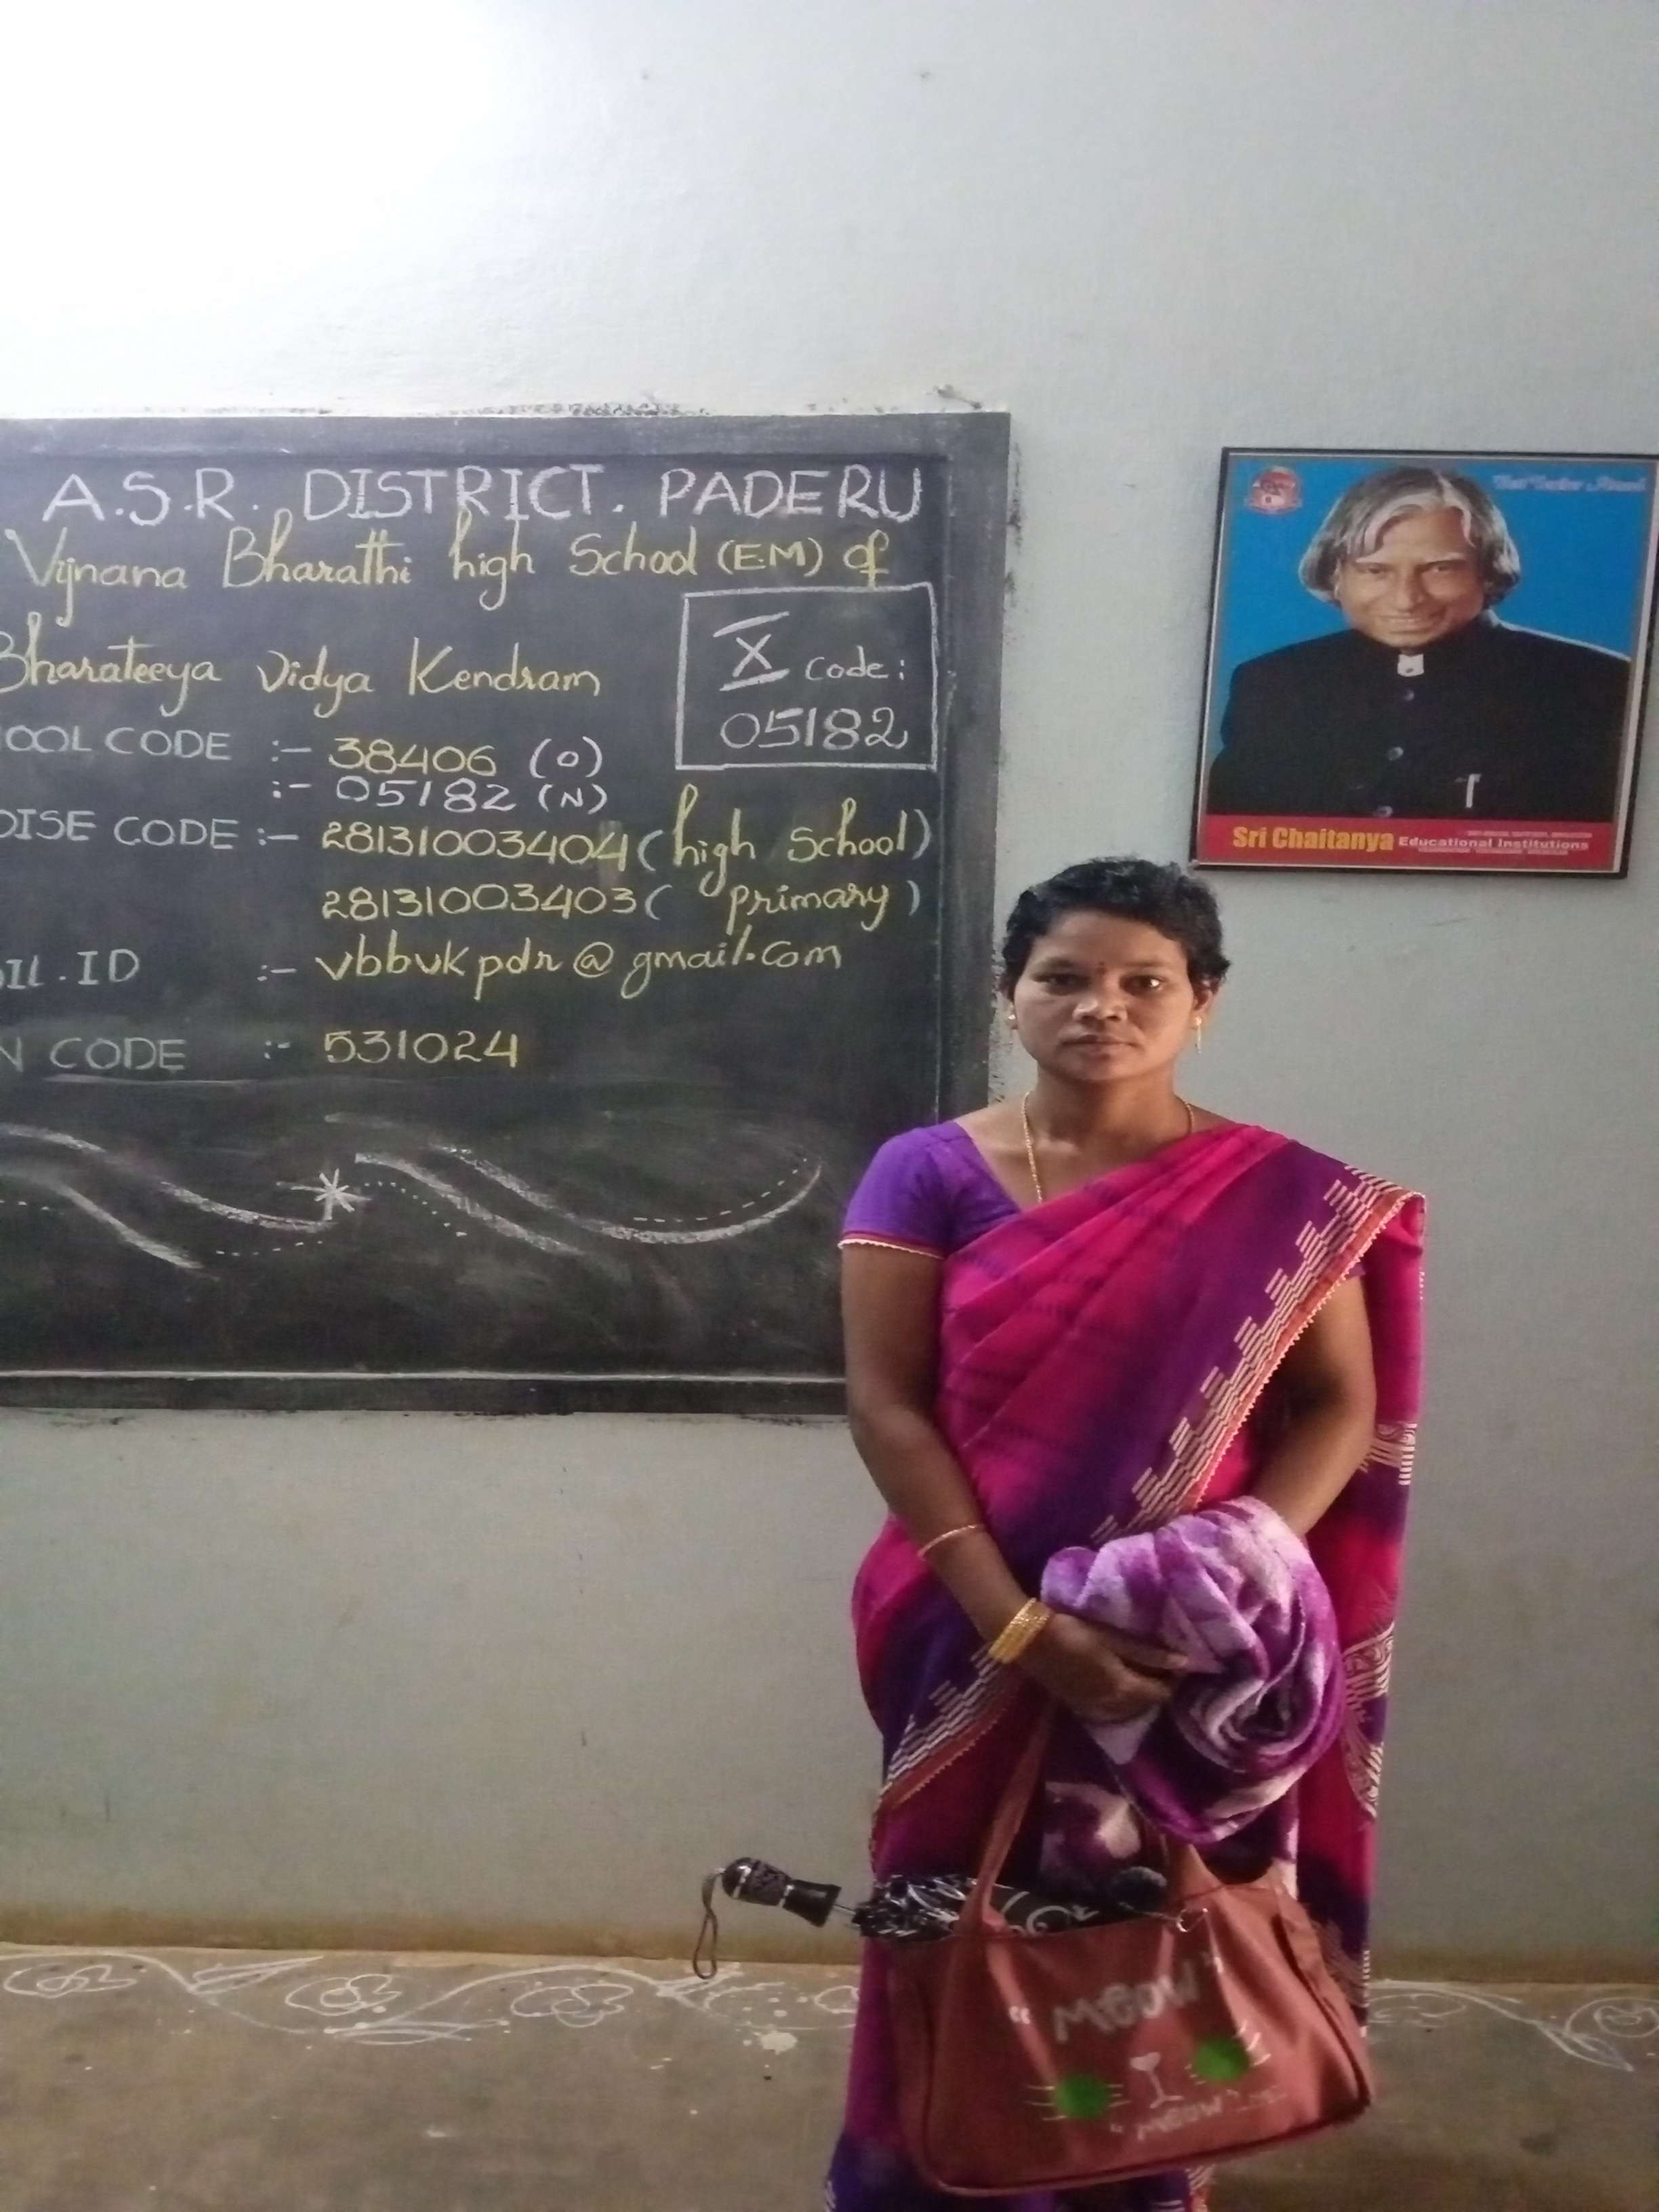 A.S.R. DISTRICT. PADERU
Vijnana Bharathi high School (E.M) of
Bharateeya Vidya Kendram
X Code:
05182
OOL CODE :- 38406 (O)
:- 05182 (N)
DISE CODE :- 28131003404 (high School)
28131003403 (primary)
IL.ID :- vbbvkpdr@gmail.com
N CODE :- 531024
Sri Chaitanya Educational Institutions
"MEOW"
"MEOW"